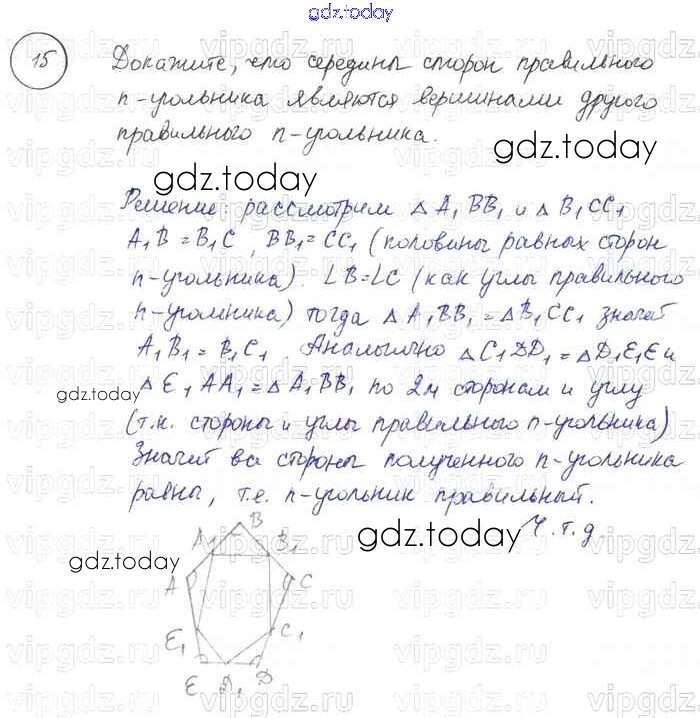 gdz.today
15
Докажите, что середины сторон правильного
n-угольника являются вершинами другого
правильного n-угольника.
gdz.today
gdz.today
Решение: рассмотрим △ A₁BB₁ и △ B₁CC₁
A₁B = B₁C, BB₁ = CC₁ (половины равных сторон
n-угольника). ∠B=∠C (как углы правильного
n-угольника) тогда △ A₁BB₁ = △B₁CC₁ значит
A₁B₁ = B₁C₁. Аналогично △C₁DD₁ = △D₁E₁E и
△ E₁AA₁ = △A₁BB₁ по 2м сторонам и углу
gdz.today
(т.к. стороны и углы правильного n-угольника)
Значит все стороны полученного n-угольника
равны, т.е. n-угольник правильный.
Ч.т.д.
gdz.today
gdz.today
B
A₁
B₁
A
C
E₁
C₁
E
D₁
D
vipgdz.ru